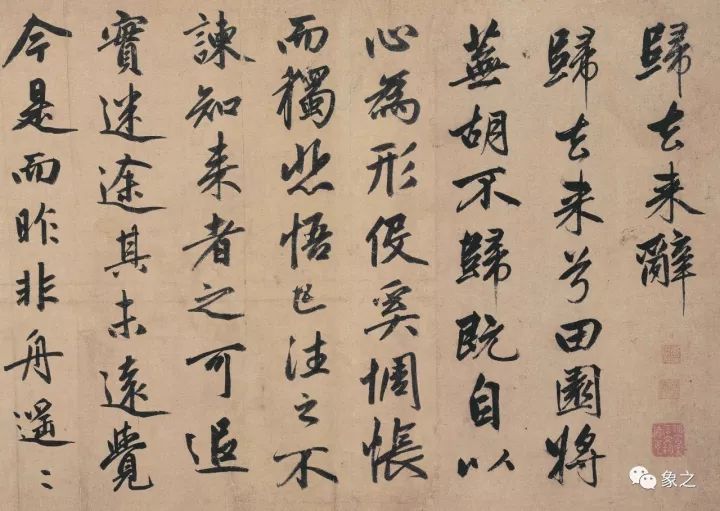 歸去来辭
歸去来兮田園將
蕪胡不歸既自以
心為形役奚惆悵
而獨悲悟已往之不
諫知来者之可追
實迷途其未遠覺
今是而昨非舟遥〻
象之